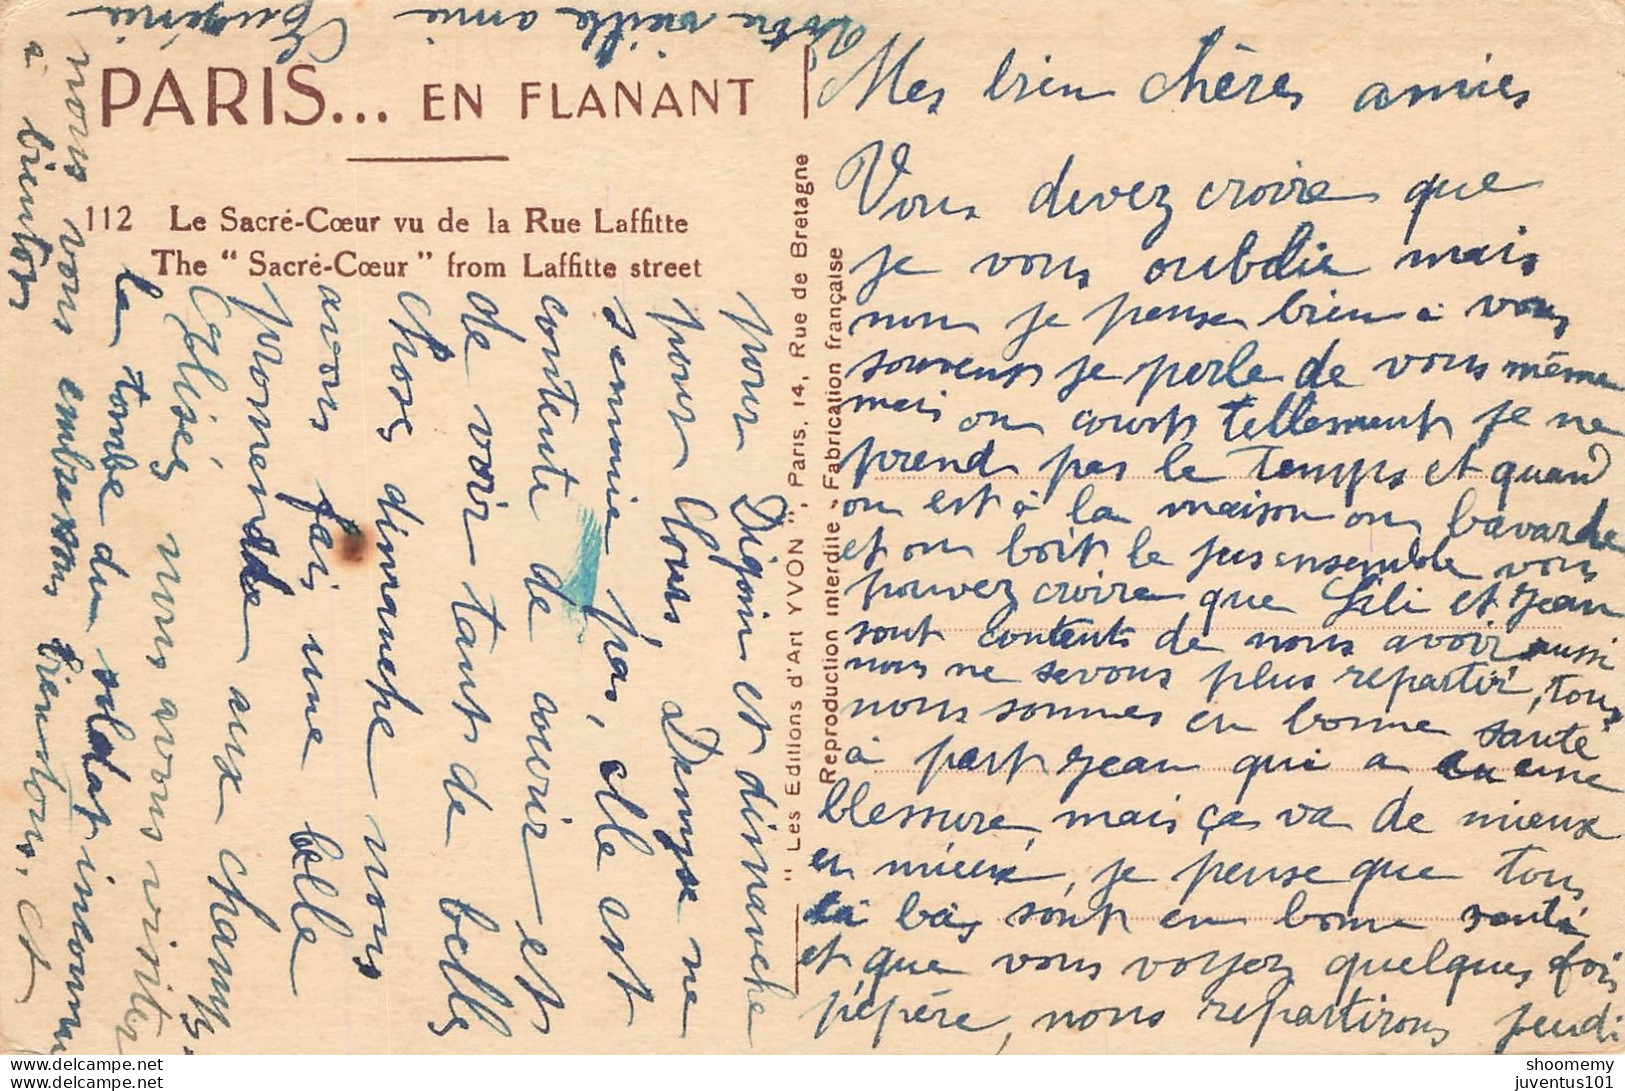 PARIS... EN FLANANT
112 Le Sacré-Cœur vu de la Rue Laffitte
The " Sacré-Cœur " from Laffitte street
" Les Editions d'Art YVON ", Paris, 14, Rue de Bretagne
Reproduction interdite - Fabrication française
Mes bien chères amies
Vous devez croire que
je vous oubdlie mais
non je pense bien à vous
souvent je perle de vous même
mais on court tellement je ne
prend pas le temps et quand
on est à la maison on bavarde
et on boit le jus ensemble vous
pouvez croire que Lili et Jean
sont contents de nous avoir aussi
nous ne sevons plus repartir, tous
nous sommes en bonne santé
à part Jean qui a eu une
blessure mais ça va de mieux
en mieux, je pense que tous
là bas sont en bonne santé
et que vous voyez quelques fois
pépère, nous repartirons jeudi
pour Digoin et dimanche
pour Cours, Denyse ne
s'ennuie pas, elle est
contente de courir et
de voir tant de belles
choses dimanche nous
avons fait une belle
promenade aux champs
Eglises nous avons visiter
la tombe du soldat inconnu
nous vous embrassons bien tous, et
à bientôt
Votre vieille amie Eugénie
shoomemy
juventus101